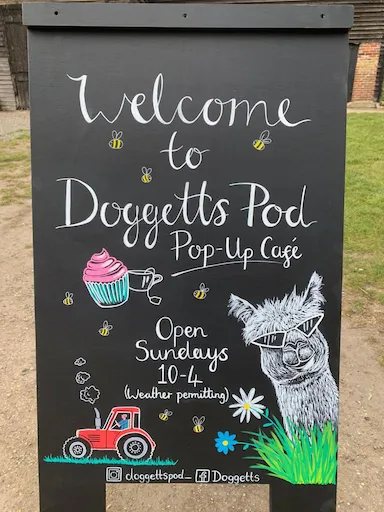 Welcome
to
Doggetts Pod
Pop-Up Café
Open
Sundays
10-4
(Weather permitting)
doggettspod_ f Doggetts